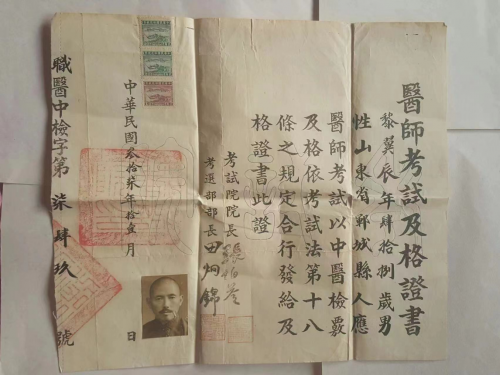 醫師考試及格證書
黎冀辰年肆拾捌歲男
性山東省鄆城縣人應
醫師考試以中醫檢覈
及格依考試法第十八
條之規定合行發給及
格證書此證
考試院院長張伯苓
考選部部長田炯錦
中華民國叁拾柒年拾壹月 日
職醫中檢字第柒肆玖號